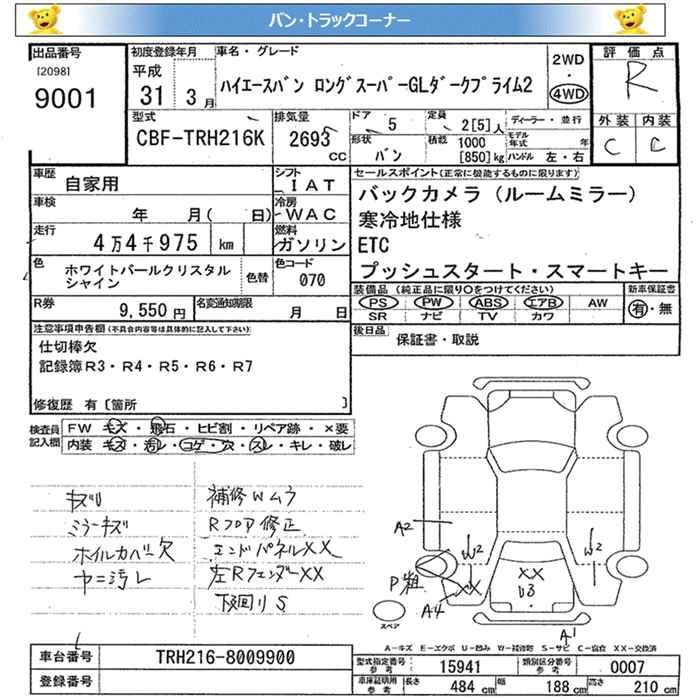 バン・トラックコーナー
出品番号 初度登録年月 車名・グレード 評価点
[2098] 平成 2WD
9001 31年 3月 ハイエースバン ロングスーパーGLダークプライム2 ・ R
4WD
型式 排気量 ドア 5 定員 2[5]人 ディーラー・並行 外装 内装
CBF-TRH216K 2693 CC 形状 バン 積載 1000 [850]kg モデル年式 年 ハンドル 左・右 C C
車歴 自家用 シフト IAT セールスポイント(正常に機能するものに限ります)
車検 年 月( 日) 冷房 WAC バックカメラ(ルームミラー)
寒冷地仕様
走行 4万4千975 km 燃料 ガソリン ETC
プッシュスタート・スマートキー
色 ホワイトパールクリスタルシャイン 色替 色コード 070
装備品(純正品に限り○をつけてください) 新車保証書
PS PW ABS エアB AW 有・無
SR ナビ TV カワ
R券 9,550円 名変通知期限 月 日
後日品 保証書・取説
注意事項申告欄(不具合内容等は具体的に記入して下さい)
仕切棒欠
記録簿R3・R4・R5・R6・R7
修復歴 有[箇所 ]
検査員記入欄 FW キズ・飛石・ヒビ割・リペア跡・×要
内装 キズ・汚レ・コゲ・穴・スレ・キレ・破レ
キズU 補修Wムラ
ミラーキズ Rフロア修正
ホイルカバー欠 エンドパネルXX
ヤニ汚レ 左RフェンダーXX
下回りS
A2
W2 W2
P粗
XX XX
A4 U3
スペア
A1
A-キズ E-エクボ U-凹み W-補修跡 S-サビ C-腐食 XX-交換済
車台番号 TRH216-8009900
登録番号
型式指定番号 参考 15941 類別区分番号 参考 0007
車庫証明用 参考 長さ 484 cm 幅 188 cm 高さ 210 cm